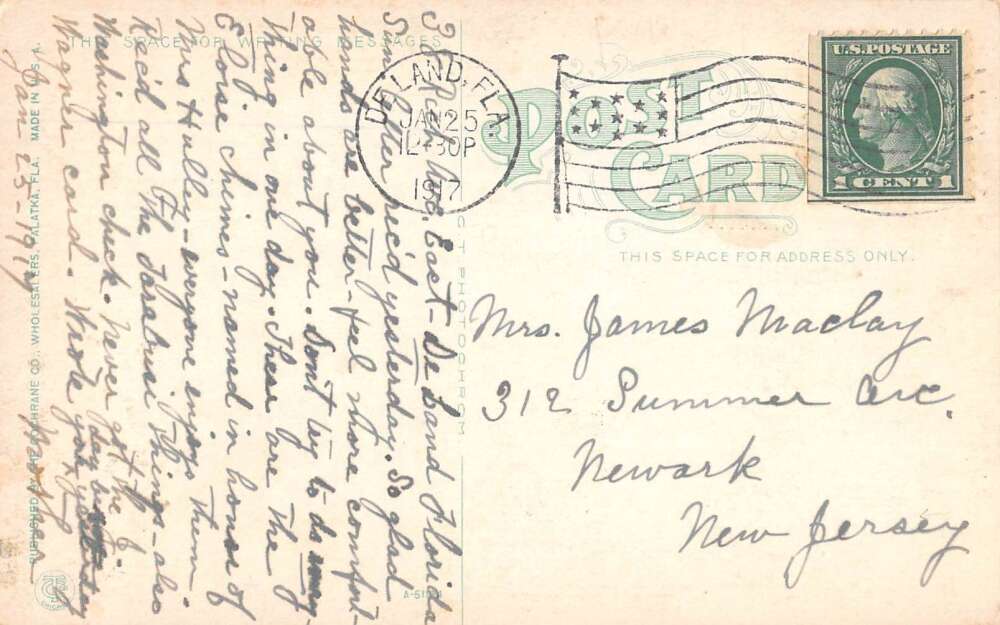 THIS SPACE FOR WRITING MESSAGES
POST CARD
THIS SPACE FOR ADDRESS ONLY.
U.S. POSTAGE
1 CENT 1
DE LAND, FLA.
JAN 25
12-30P
1917
Mrs. James Maclay
312 Summer Ave.
Newark
New Jersey
Rich Ave. East - De Land Florida
Sun. letter rec'd yesterday. So glad
hands are better - feel more comfort-
able about you. Don't try to do
thing in one day. These are the
Eloise chimes - named in honor of
Mrs Hulley - everyone enjoys them.
Rec'd all the things - also
Washington check. Never got the
Wagner card. Wrote you yesterday
Jan 25-1917
C T PHOTOCHROM
A-51
PUBLISHED BY THE COCHRANE CO., WHOLESALERS, PALATKA, FLA. MADE IN U.S.A.